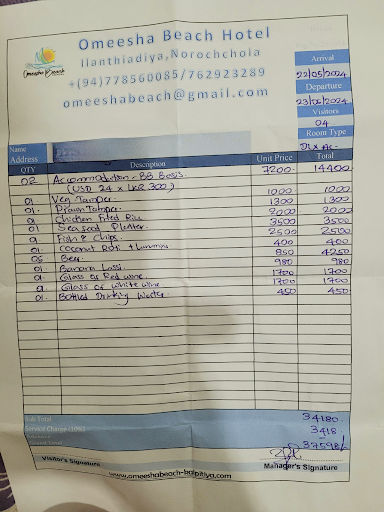 Omeesha Beach Hotel
Ilanthiadiya,Norochchola
+(94)778560085/762923289
omeeshabeach@gmail.com
Omeesha Beach
Arrival
22/05/2024
Departure
23/05/2024
Visitors
04
Room Type
Dlx Ac
Name
Address
QTY Description Unit Price Total
02 Accommodation - BB Basis. 7200- 14400
(USD 24 x LKR 300)
01 Veg Tampura. 1000 1000
01. Prawn Tampura. 1300 1300
01 Chicken Fried Rice 2000 2000
01 Sea food Platter. 3500 3500
01 Fish & Chips. 2500 2500
01 Coconut Roti + Lunumiris 400 400
05 Beer 850 4250
01. Banana Lassi. 980 980
01. Glass of Red wine. 1700 1700
01. Glass of white wine 1700 1700
01. Bottled Drinking Water. 450 450
Sub Total 34180.
Service Charge (10%) 3418
37598/-
Visitor's Signature
Manager's Signature
www.omeeshabeach-balpitiya.com